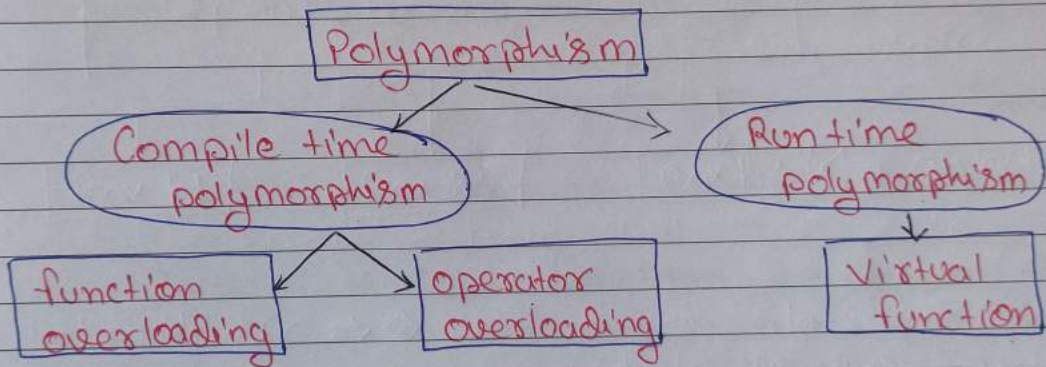 Polymorphism
Compile time
polymorphism
Run time
polymorphism
function
overloading
operator
overloading
Virtual
function